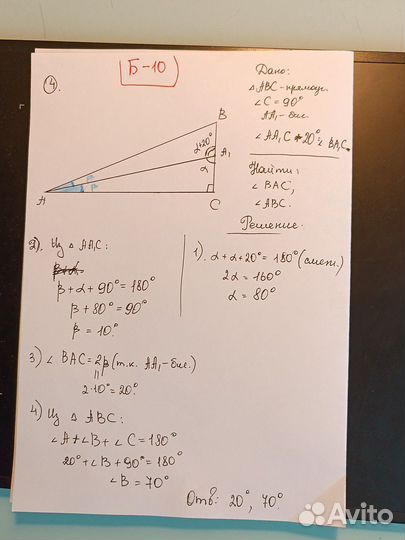 Б-10
4.
Дано:
△ABC-прямоуг.
∠C = 90°
AA₁-бис.
∠AA₁C + 20° = ∠BA₁C
Найти:
∠BAC,
∠ABC.
Решение.
B
α+20°
A₁
α
β
β
A
C
1). α + α + 20° = 180° (смеж.)
2α = 160°
α = 80°
2). Из △AA₁C:
β + α + 90° = 180°
β + 80° = 90°
β = 10°.
3) ∠BAC = 2β (т.к. AA₁-бис.)
"
2·10° = 20°.
4) Из △ABC:
∠A + ∠B + ∠C = 180°
20° + ∠B + 90° = 180°
∠B = 70°
Отв: 20°, 70°.
Avito